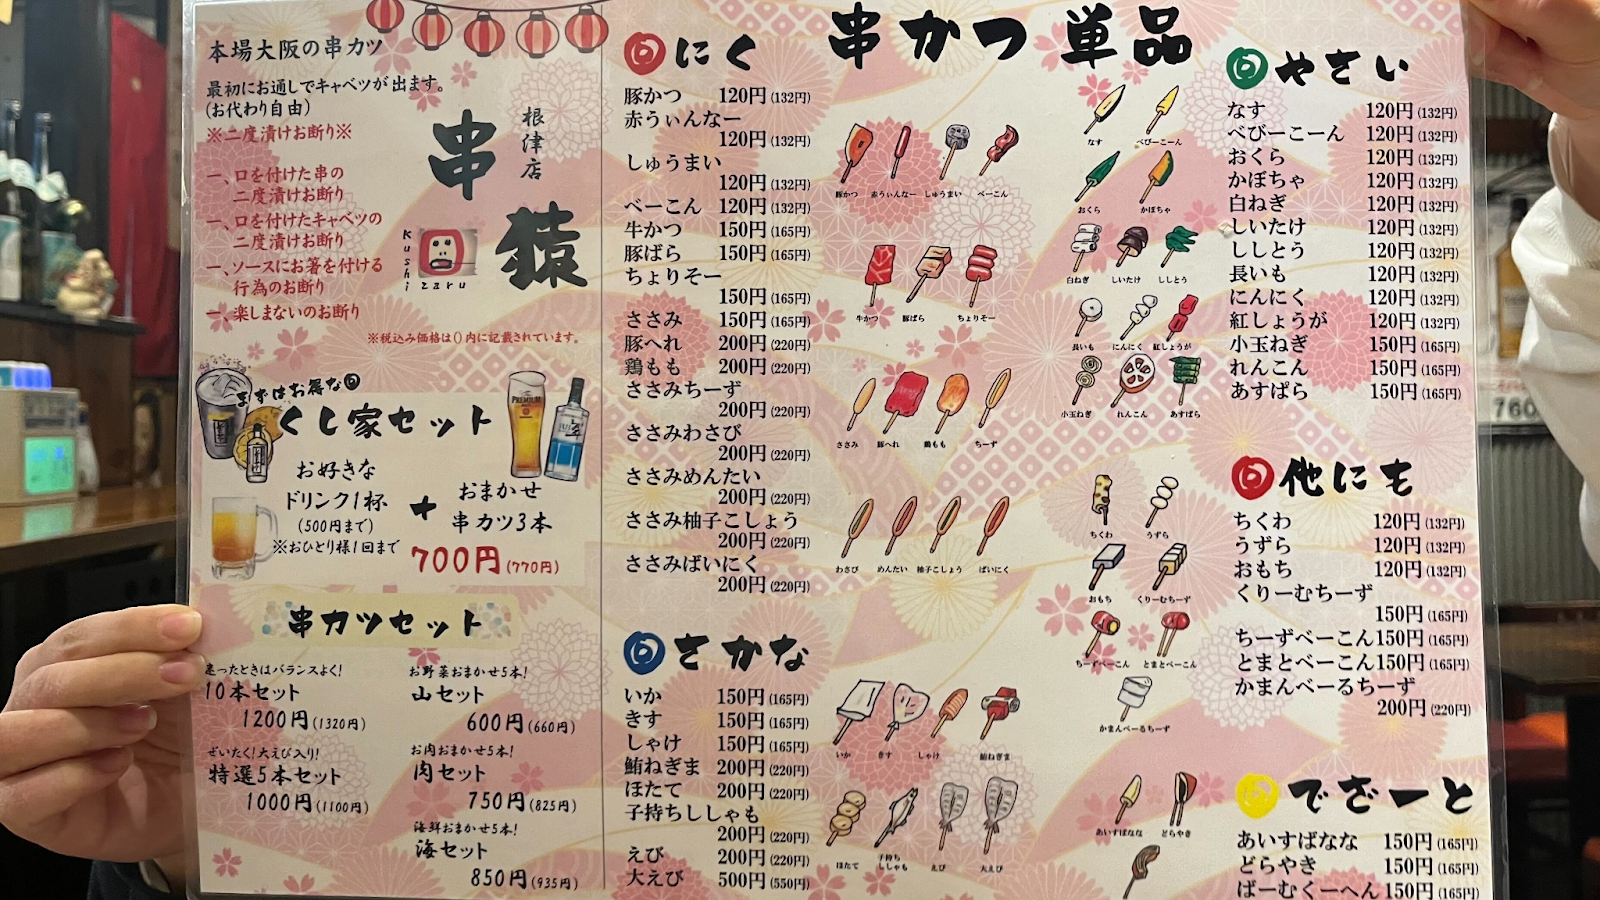 本場大阪の串カツ
最初にお通しでキャベツが出ます。
(お代わり自由)
※二度漬けお断り※
一、口を付けた串の
二度漬けお断り
一、口を付けたキャベツの
二度漬けお断り
一、ソースにお箸を付ける
行為のお断り
一、楽しまないのお断り
根津店
串猿
Kushi
zaru
※税込み価格は()内に記載されています。
まずはお得な
くし家セット
お好きな
ドリンク1杯
(500円まで)
※おひとり様1回まで
+
おまかせ
串カツ3本
700円(770円)
串カツセット
迷ったときはバランスよく!
10本セット
1200円(1320円)
ぜいたく!大えび入り!
特選5本セット
1000円(1100円)
お野菜おまかせ5本!
山セット
600円(660円)
お肉おまかせ5本!
肉セット
750円(825円)
海鮮おまかせ5本!
海セット
850円(935円)
串かつ単品
にく
豚かつ 120円(132円)
赤うぃんなー
120円(132円)
しゅうまい
120円(132円)
べーこん 120円(132円)
牛かつ 150円(165円)
豚ばら 150円(165円)
ちょりそー
150円(165円)
ささみ 150円(165円)
豚へれ 200円(220円)
鶏もも 200円(220円)
ささみちーず
200円(220円)
ささみわさび
200円(220円)
ささみめんたい
200円(220円)
ささみ柚子こしょう
200円(220円)
ささみばいにく
200円(220円)
さかな
いか 150円(165円)
きす 150円(165円)
しゃけ 150円(165円)
鮪ねぎま 200円(220円)
ほたて 200円(220円)
子持ちししゃも
200円(220円)
えび 200円(220円)
大えび 500円(550円)
豚かつ 赤うぃんなー しゅうまい べーこん
牛かつ 豚ばら ちょりそー
ささみ 豚へれ 鶏もも ちーず
わさび めんたい 柚子こしょう ばいにく
いか きす しゃけ 鮪ねぎま
ほたて 子持ちししゃも えび 大えび
なす べびーこーん
おくら かぼちゃ
白ねぎ しいたけ ししとう
長いも にんにく 紅しょうが
小玉ねぎ れんこん あすぱら
ちくわ うずら
おもち くりーむちーず
ちーずべーこん とまとべーこん
かまんべーるちーず
あいすばなな どらやき
やさい
なす 120円(132円)
べびーこーん 120円(132円)
おくら 120円(132円)
かぼちゃ 120円(132円)
白ねぎ 120円(132円)
しいたけ 120円(132円)
ししとう 120円(132円)
長いも 120円(132円)
にんにく 120円(132円)
紅しょうが 120円(132円)
小玉ねぎ 150円(165円)
れんこん 150円(165円)
あすぱら 150円(165円)
他にも
ちくわ 120円(132円)
うずら 120円(132円)
おもち 120円(132円)
くりーむちーず
150円(165円)
ちーずべーこん150円(165円)
とまとべーこん150円(165円)
かまんべーるちーず
200円(220円)
でざーと
あいすばなな 150円(165円)
どらやき 150円(165円)
ばーむくーへん150円(165円)
760